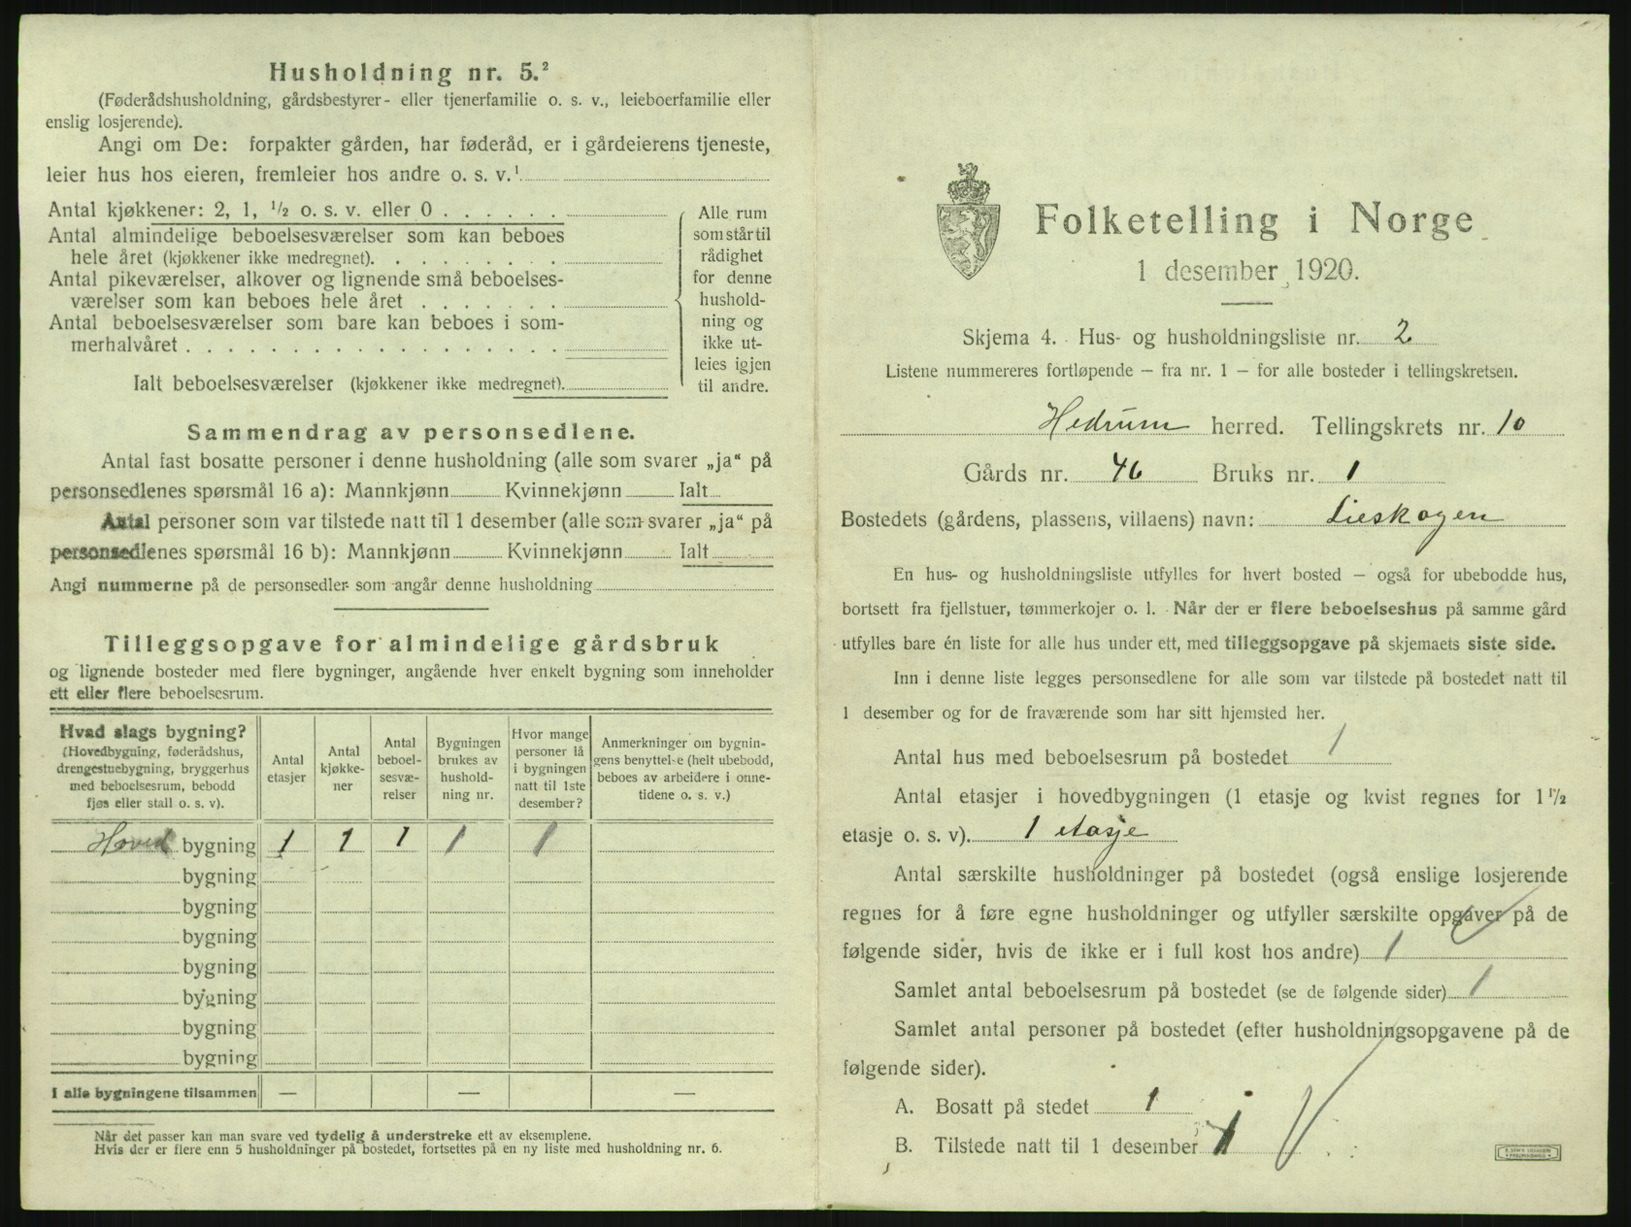 Husholdning nr. 5.²
(Føderådshusholdning, gårdsbestyrer- eller tjenerfamilie o. s. v., leieboerfamilie eller
enslig losjerende).
Angi om De: forpakter gården, har føderåd, er i gårdeierens tjeneste,
leier hus hos eieren, fremleier hos andre o. s. v.¹
Antal kjøkkener: 2, 1, ½ o. s. v. eller 0
Antal almindelige beboelsesværelser som kan beboes
hele året (kjøkkener ikke medregnet).
Antal pikeværelser, alkover og lignende små beboelses-
værelser som kan beboes hele året
Antal beboelsesværelser som bare kan beboes i som-
merhalvåret
Ialt beboelsesværelser (kjøkkener ikke medregnet).
Alle rum
som står til
rådighet
for denne
hushold-
ning og
ikke ut-
leies igjen
til andre.
Sammendrag av personsedlene.
Antal fast bosatte personer i denne husholdning (alle som svarer „ja“ på
personsedlenes spørsmål 16 a): Mannkjønn Kvinnekjønn Ialt
Antal personer som var tilstede natt til 1 desember (alle som svarer „ja“ på
personsedlenes spørsmål 16 b): Mannkjønn Kvinnekjønn Ialt
Angi nummerne på de personsedler som angår denne husholdning
Tilleggsopgave for almindelige gårdsbruk
og lignende bosteder med flere bygninger, angående hver enkelt bygning som inneholder
ett eller flere beboelsesrum.
Hvad slags bygning?
(Hovedbygning, føderådshus,
drengestuebygning, bryggerhus
med beboelsesrum, bebodd
fjøs eller stall o. s. v).
Antal
etasjer
Antal
kjøkke-
ner
Antal
beboel-
sesvæ-
relser
Bygningen
brukes av
hushold-
ning nr.
Hvor mange
personer lå
i bygningen
natt til 1ste
desember?
Anmerkninger om bygnin-
gens benyttelse (helt ubebodd,
beboes av arbeidere i onne-
tidene o. s. v.)
Hoved bygning 1 1 1 1 1
bygning
bygning
bygning
bygning
bygning
bygning
bygning
I alle bygningene tilsammen — — —
Når det passer kan man svare ved tydelig å understreke ett av eksemplene.
Hvis der er flere enn 5 husholdninger på bostedet, fortsettes på en ny liste med husholdning nr. 6.
Folketelling i Norge
1 desember 1920.
Skjema 4. Hus- og husholdningsliste nr. 2
Listene nummereres fortløpende — fra nr. 1 — for alle bosteder i tellingskretsen.
Hedrum herred. Tellingskrets nr. 10
Gårds nr. 46 Bruks nr. 1
Bostedets (gårdens, plassens, villaens) navn: Lieskogen
En hus- og husholdningsliste utfylles for hvert bosted — også for ubebodde hus,
bortsett fra fjellstuer, tømmerkojer o. l. Når der er flere beboelseshus på samme gård
utfylles bare én liste for alle hus under ett, med tilleggsopgave på skjemaets siste side.
Inn i denne liste legges personsedlene for alle som var tilstede på bostedet natt til
1 desember og for de fraværende som har sitt hjemsted her.
Antal hus med beboelsesrum på bostedet 1
Antal etasjer i hovedbygningen (1 etasje og kvist regnes for 1½
etasje o. s. v). 1 etasje
Antal særskilte husholdninger på bostedet (også enslige losjerende
regnes for å føre egne husholdninger og utfyller særskilte opgaver på de
følgende sider, hvis de ikke er i full kost hos andre) 1
Samlet antal beboelsesrum på bostedet (se de følgende sider) 1
Samlet antal personer på bostedet (efter husholdningsopgavene på de
følgende sider).
A. Bosatt på stedet 1
B. Tilstede natt til 1 desember 1